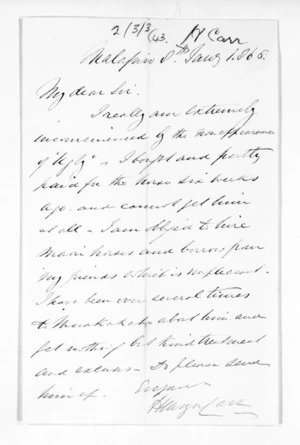 2/3/3
43. H Carr
Matapiro 8th Jany 1868.
My dear Sir.
I really am extremely
inconvenienced by the non appearance
of "Ugly" - I bought and partly
paid for the horse six weeks
ago. and cannot get him
at all - I am obliged to hire
Maori horses and borrow from
my friends which is unpleasant -
I have been over several times
to about him and
get nothing but kind treatment
and excuses - Do please send
him up.
Carr